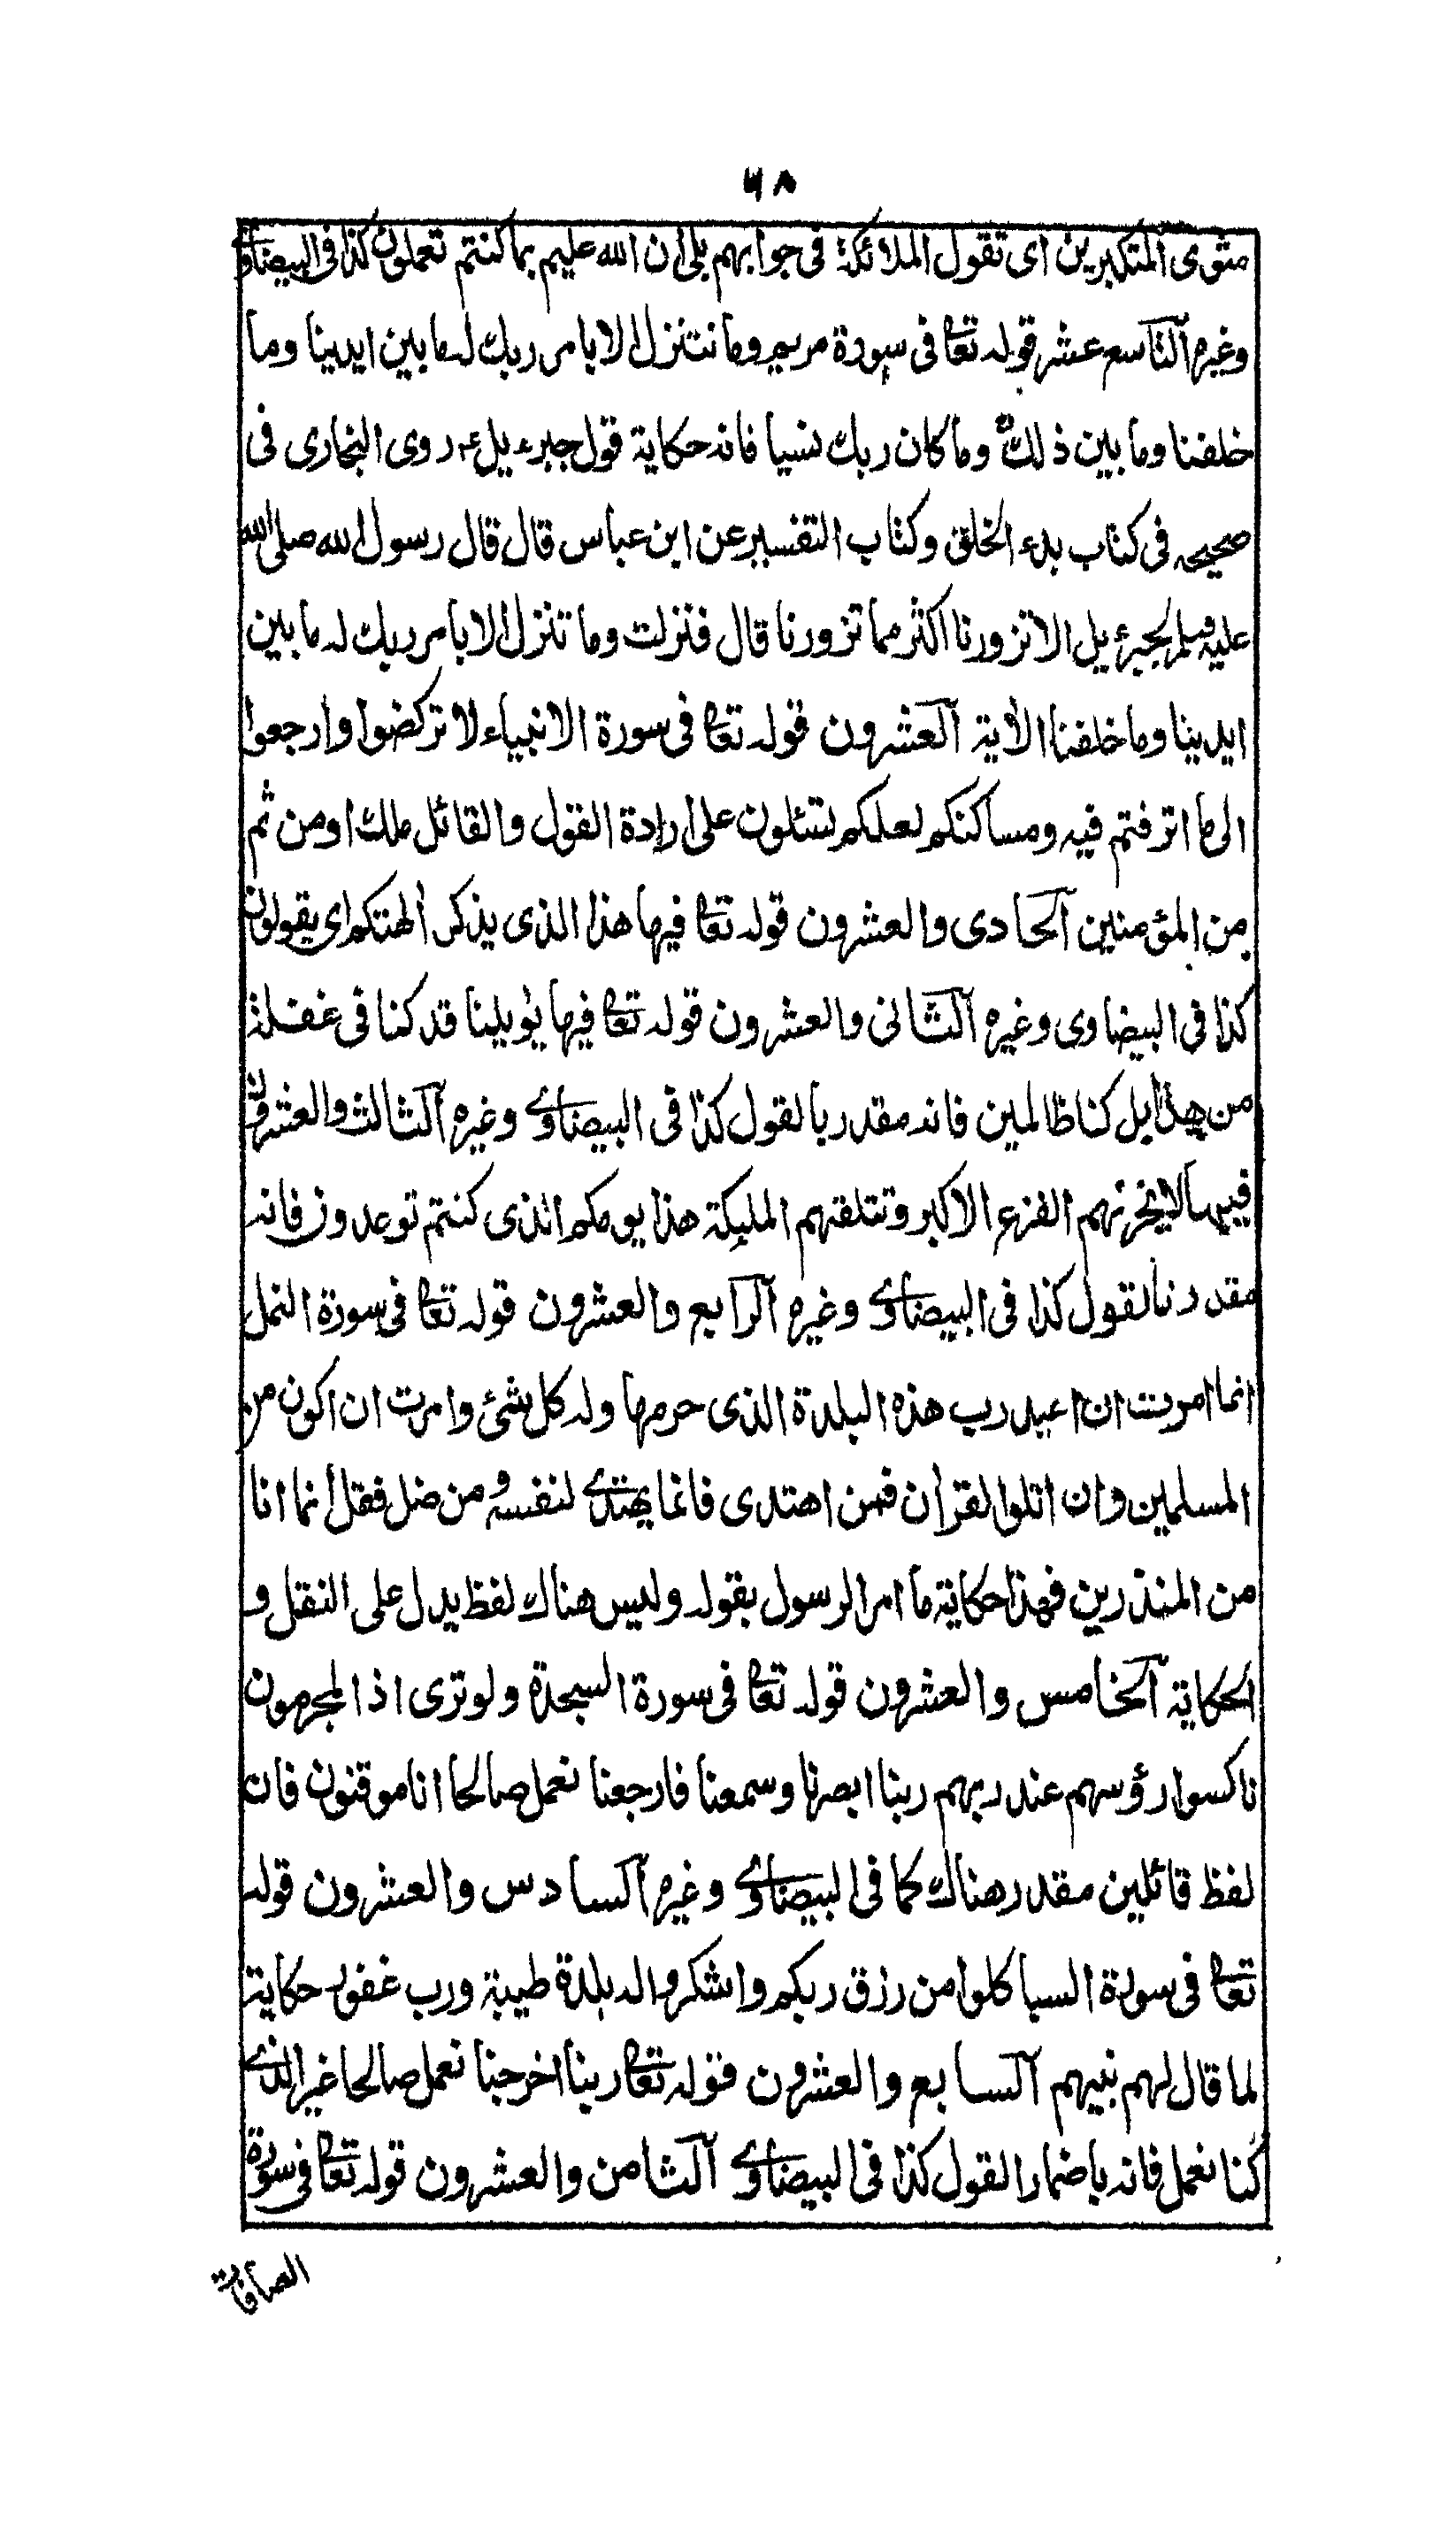 ٦٨
مثوى المتكبرين اى تقول الملائكة فى جوابهم بلى ان الله عليم بما كنتم تعملون كذا فى البيضاو
وغيره التاسع عشر قوله تعا فى سورة مريم وما نتنزل الا بامر ربك له ما بين ايدينا وما
خلفنا وما بين ذلك وما كان ربك نسيا فانه حكاية قول جبرءيل ء روى البخارى فى
صحيحه فى كتاب بدء الخلق وكتاب التفسير عن ابن عباس قال قال رسول الله صلى الله
عليه وسلم لجبرئيل الا تزورنا اكثر مما تزورنا قال فنزلت وما نتنزل الا بامر ربك له ما بين
ايدينا وما خلفنا الأية العشرون قوله تعا فى سورة الانبياء لا تركضوا وارجعوا
الى ما اترفتم فيه ومساكنكم لعلكم تسئلون على ارادة القول والقائل ملك او من ثم
من المؤمنين الحادى والعشرون قوله تعا فيها هذا الذى يذكر ألهتكم اى يقولون
كذا فى البيضاوى وغيره الثانى والعشرون قوله تعا فيها يٰويلنا قد كنا فى غفلة
من هذا بل كنا ظالمين فانه مقدر بالقول كذا فى البيضاوى وغيره الثالث والعشرون
فيها لا يحزنهم الفزع الاكبر وتتلقهم الملىكة هذا يومكم الذى كنتم توعدون فانه
مقدر بالقول كذا فى البيضاوى وغيره الرابع والعشرون قوله تعا فى سورة النمل
انما امرت ان اعبد رب هذه البلدة الذى حرمها وله كل شئ وامرت ان اكون من
المسلمين وان اتلوا القرأن فمن اهتدى فانما يهتدى لنفسه ومن ضل فقل انما انا
من المنذرين فهذا حكاية ما امر الرسول بقوله وليس هناك لفظ يدل على النقل و
الحكاية الخامس والعشرون قوله تعا فى سورة السجدة ولو ترى اذ المجرمون
ناكسوا رؤسهم عند ربهم ربنا ابصرنا وسمعنا فارجعنا نعمل صالحا انا موقنون فان
لفظ قائلين مقدر هناك كما فى البيضاوى وغيره السادس والعشرون قوله
تعا فى سورة السبا كلوا من رزق ربكم واشكروا له بلدة طيبة ورب غفور حكاية
لما قال لهم نبيهم السابع والعشرون قوله تعا ربنا اخرجنا نعمل صالحا غير الذى
كنا نعمل فانه باضمار القول كذا فى البيضاوى الثامن والعشرون قوله تعا فى سورة
الصافات